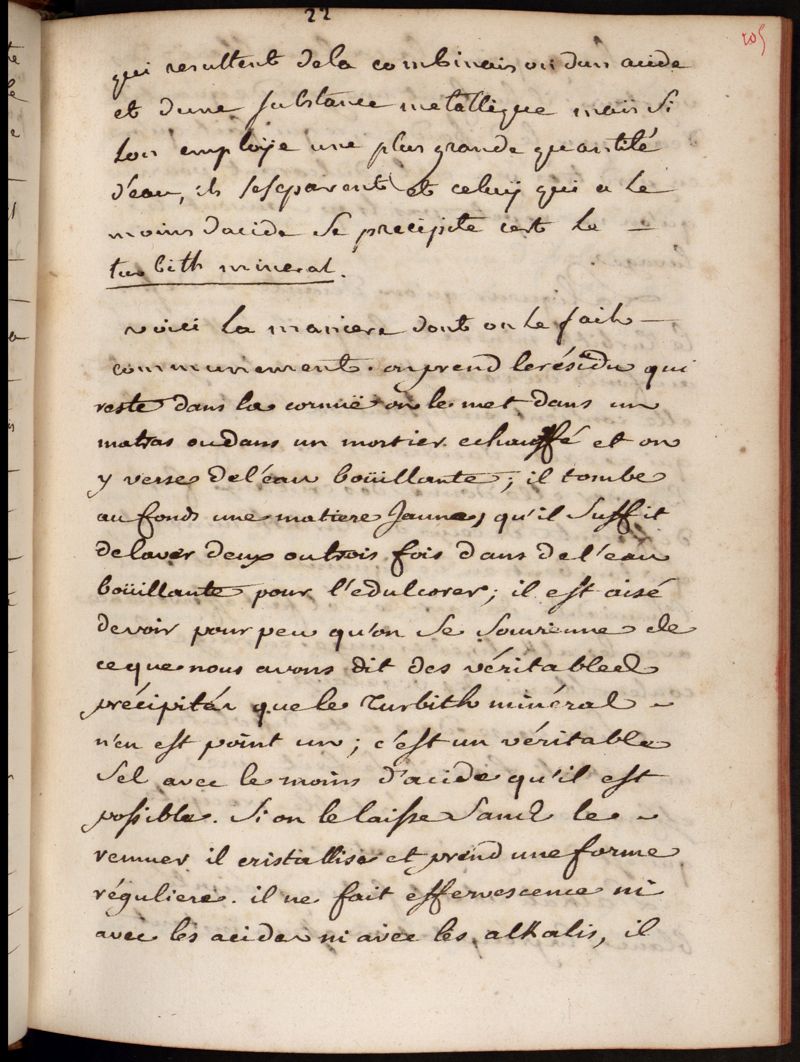 22
205
qui resultent dela combinaison dun acide
et dune substance metallique mais si
lon employe une plus grande quantité
d'eau, ils seséparent et celuy qui a le
moins dacide se precipite cest le —
turbith mineral.
voici la maniere dont on le fait —
communement. on prend lerésidu qui
reste dans la cornuë on le met dans un
matras oudans un mortier echauffé et on
y verse del'éau boüillante; il tombe
au fonds une matiere Jaune, qu'il suffit
delaver deux outrois fois dans de l'eau
boüillante pour l'edulcorer; il est aisé
devoir pourpeu qu'on se souvienne de
ceque nous avons dit des véritables
précipités que le Turbith minéral ~
n'en est point un; c'est un véritable
sel avec le moins d'acide qu'il est
possible. Si on le laisse sans le ~
remuer il cristallise et prend une forme
réguliere. il ne fait effervescence ni
avec les acides ni avec les alkalis, il